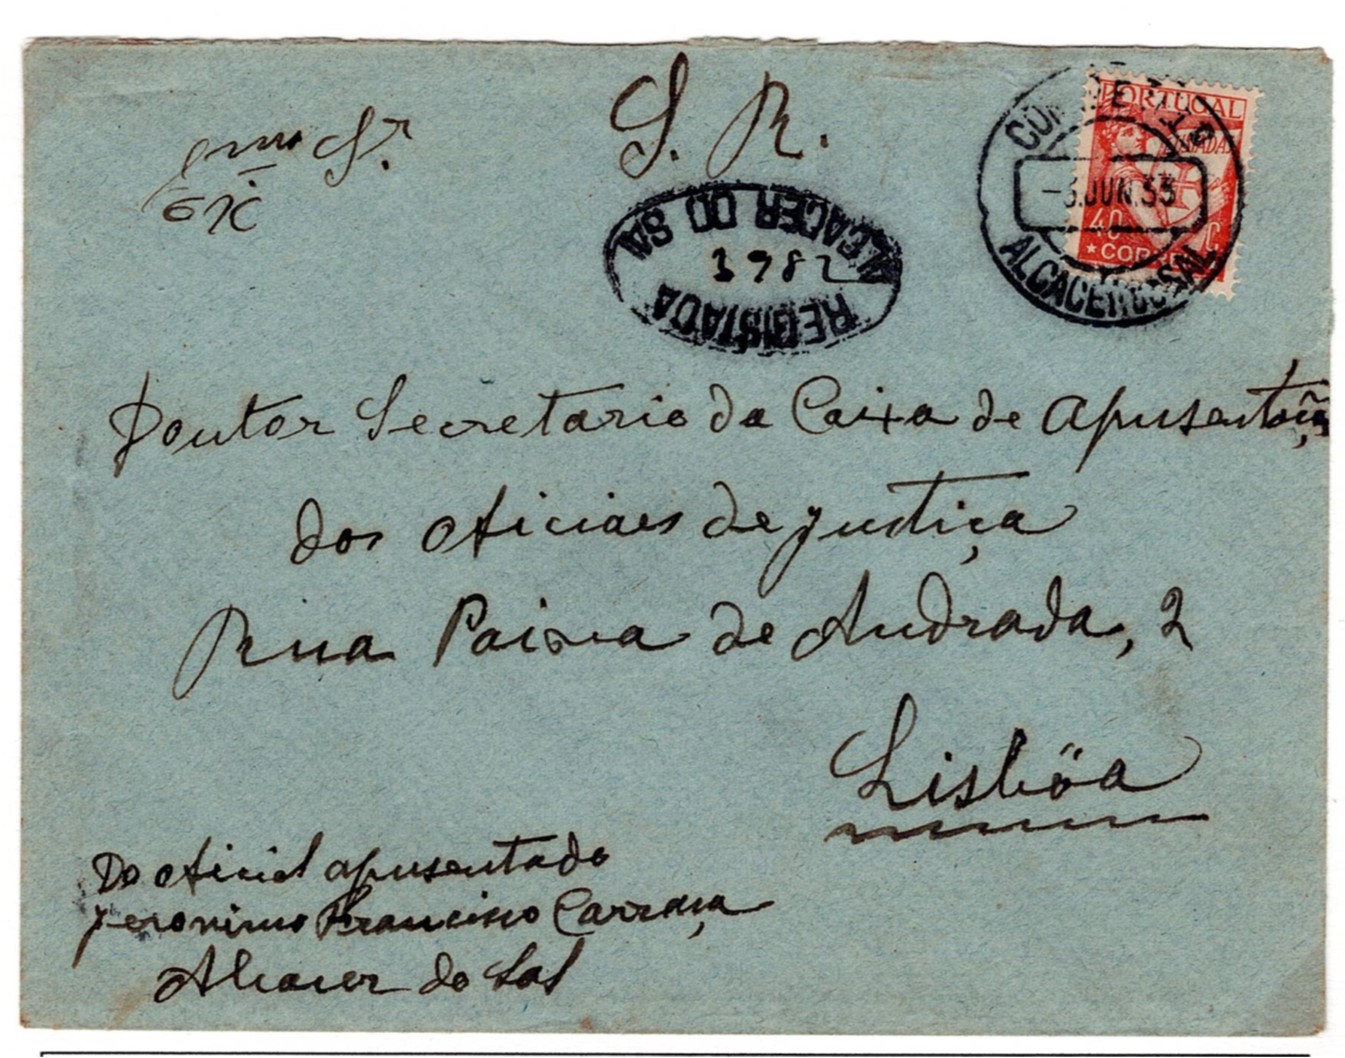 S. R.
Exmo Sr.
PORTUGAL
LUSIADAS
40 C.
CORREIO
CORREIO
-3.JUN.33
ALCACER DO SAL
ALCACER DO SAL
3982
REGISTADA
Doutor Secretario da Caixa de Apusentações
dos Oficiaes de justiça
Rua Paiva de Andrada, 2
Lisböa
Do oficial apusentado
Jeronimo Francisco Carraça
Alcacer do Sal